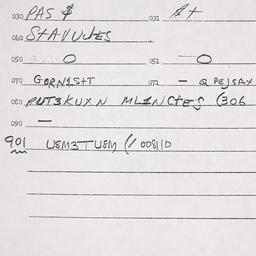 030 PAS $ 031 A+
040 STAVUWES
050 O 051 O
070 GORNIST+ 071 - Q PEJSAX
080 PUT3KUXN MLINCTES (306
090 —
901 UEM3TUEM (/ 008110